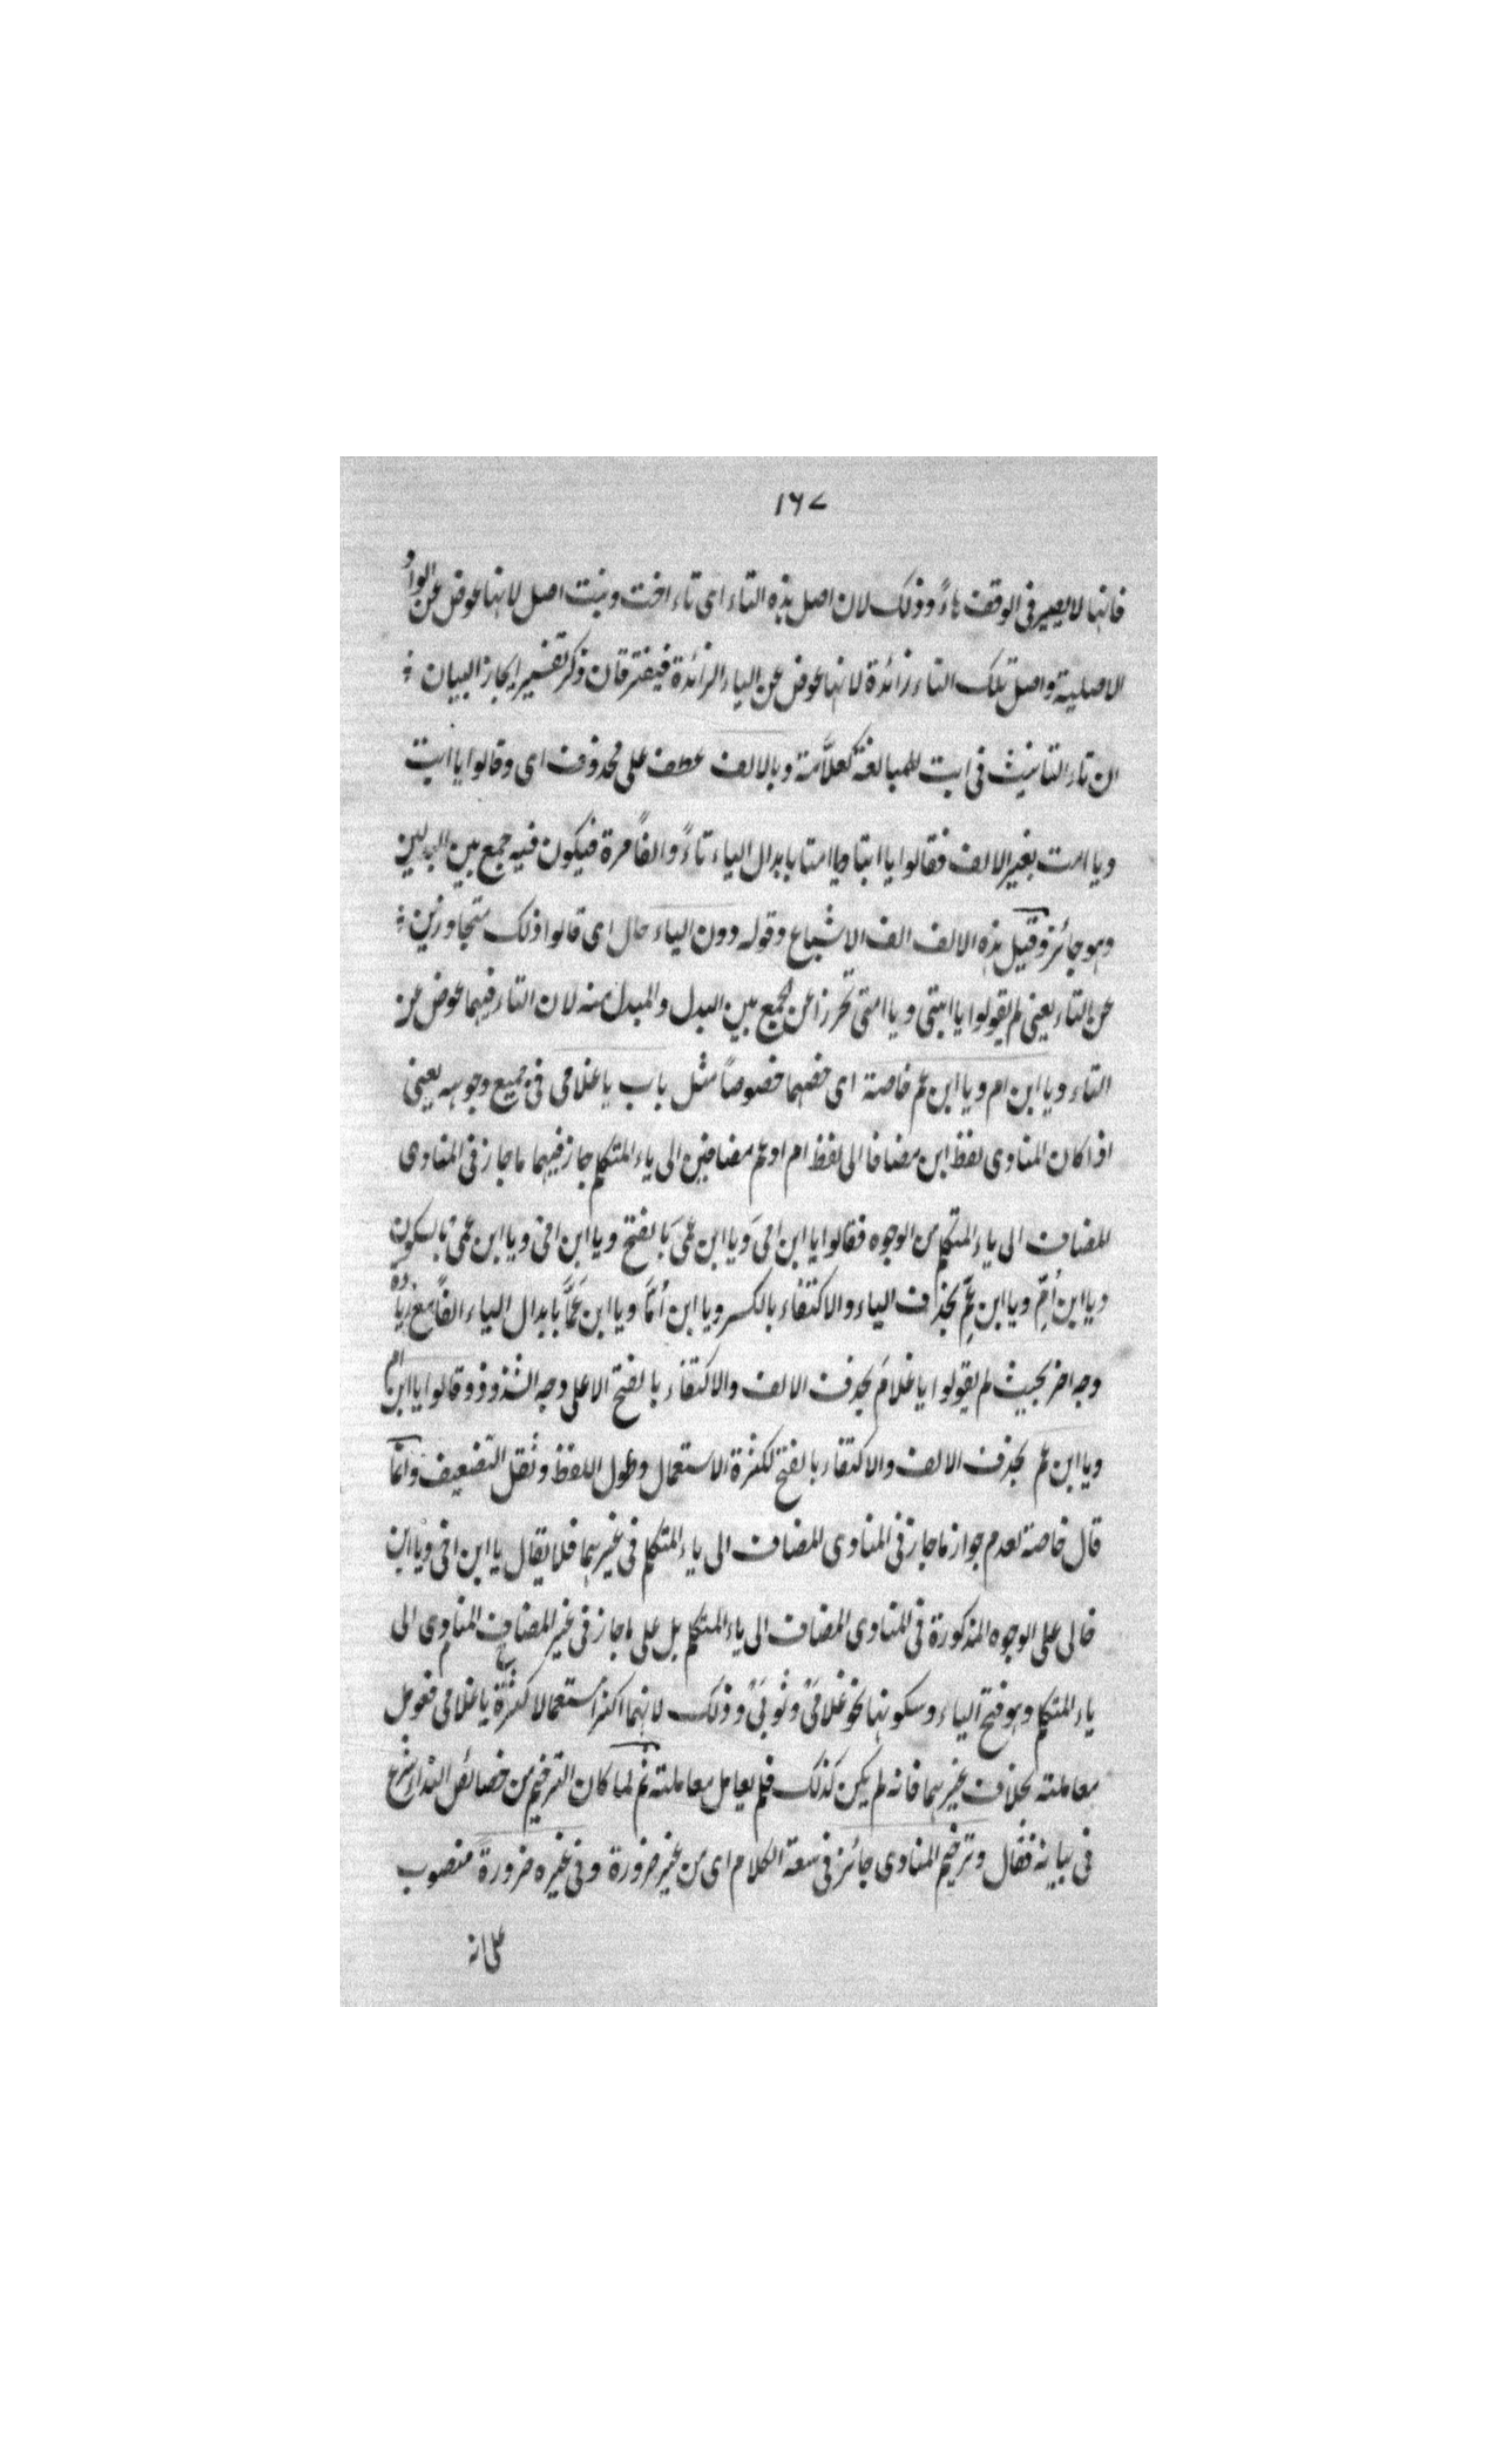 ١٦٧
فانها لا يصير فى الوقف هاءً وذلك لان اصل هذه التاء اى تاء اخت وبنت اصل لانها عوض عن الواو
الاصلية واصل تلك التاء زائدة لانها عوض عن الياء الزائدة فيفترقان وذكر تفسير ايجاز البيان
ان تاء التانيث فى ابت للمبالغة كعلّامة وبالالف عطف على محذوف اى وقالوا يا ابت
ويا امت بغير الالف فقالوا يا ابتا ويا امتا بابدال الياء تاءً والفاً مرة فيكون فيه جمع بين البدلين
وهو جائز وقيل هذه الالف الف الاشباع وقوله دون الياء حال اى قالوا ذلك متجاوزين
عن التاء يعنى لم يقولوا يا ابتى ويا امتى تحرزا عن الجمع بين البدل والمبدل منه لان التاء فيهما عوض عن
التاء ويا ابن ام ويا ابن عم خاصة اى خصهما خصوصاً مثل باب يا غلامى فى جميع وجوهه يعنى
اذا كان المنادى لفظ ابن مضافا الى لفظ ام او عم مضافين الى ياء المتكلم جاز فيهما ما جاز فى المنادى
المضاف الى ياء المتكلم من الوجوه فقالوا يا ابن امىَ ويا ابن عمىَ بالفتح ويا ابن امى ويا ابن عمى بالسكون
ويا ابن اُمِّ ويا ابن عَمِّ بحذف الياء والاكتفاء بالكسر ويا ابن اُمَّا ويا ابن عَمَّا بابدال الياء الفاً مع زيادة
وجه اخر بحيث لم يقولوا يا غلامَ بحذف الالف والاكتفاء بالفتح الا على وجه الشذوذ وقالوا يا ابن ام
ويا ابن عم بحذف الالف والاكتفاء بالفتح لكثرة الاستعمال وطول اللفظ وثقل التضعيف وانما
قال خاصة لعدم جواز ما جاز فى المنادى المضاف الى ياء المتكلم فى غيرهما فلا يقال يا ابن اخى ويا ابن
خالى على الوجوه المذكورة فى المنادى المضاف الى ياء المتكلم بل على ما جاز فى غير المضاف المنادى الى
ياء المتكلم وهو فتح الياء وسكونها نحو غلامى وثوبى وذلك لانهما اكثر استعمالا كثرة يا غلامى فعومل
معاملته بخلاف غيرهما فانه لم يكن كذلك فلم يعامل معاملته ثم لما كان الترخيم من خصائص النداء شرع
فى بيانه فقال وترخيم المنادى جائز فى سعة الكلام اى من غير ضرورة وفى غيره ضرورة منصوب
على انه